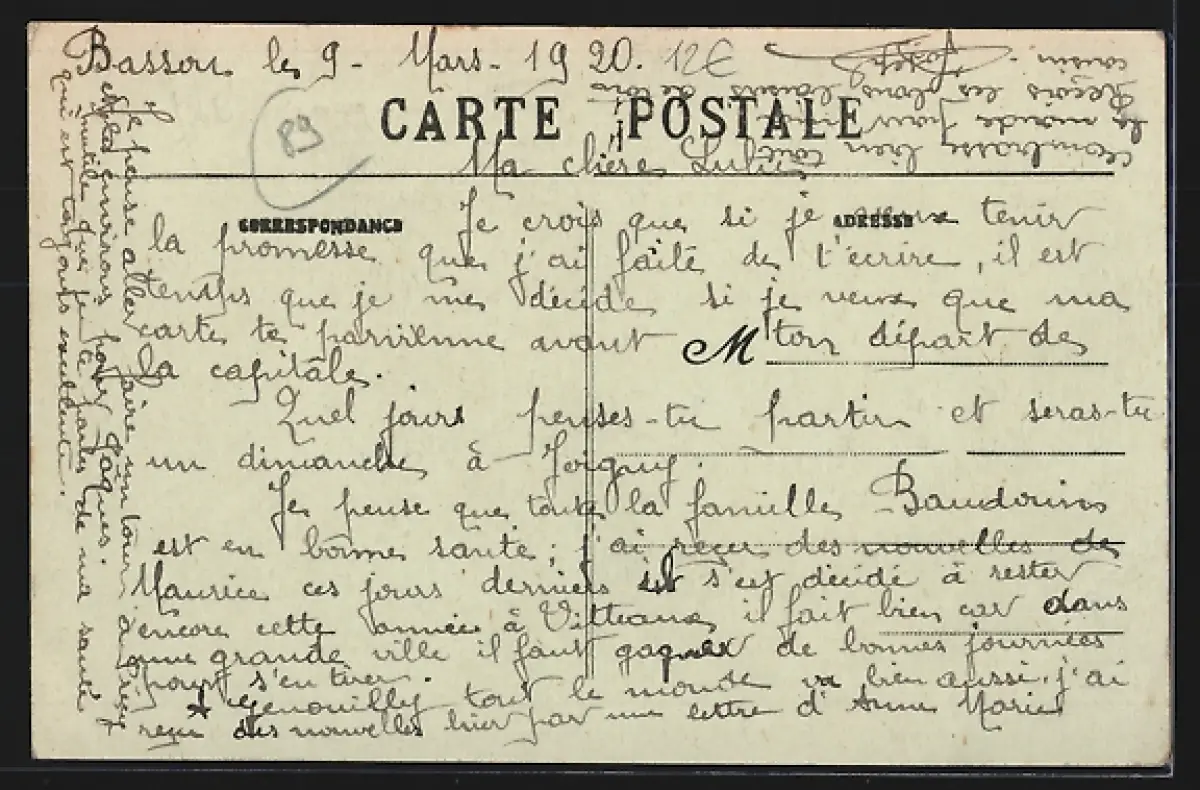 Bassou le 9 - Mars - 1920. 12€
89
CARTE POSTALE
Ma chère Lulu
CORRESPONDANCE
ADRESSE
Je crois que si je veux tenir
la promesse que j'ai faite de t'écrire, il est
temps que je me décide si je veux que ma
carte te parvienne avant ton départ de
M
la capitale.
Quel jours penses-tu partir et seras-tu
un dimanche à Joigny.
Je pense que toute la famille Baudouin
est en bonne santé; j'ai reçu des nouvelles de
Maurice ces jours derniers il s'est décidé à rester
encore cette année à Vitteaux il fait bien car dans
une grande ville il faut gagner de bonnes journées
pour s'en tirer.
* Genouilly tout le monde va bien aussi, j'ai
reçu des nouvelles hier par une lettre d'Anne Marie
Je pense aller faire un tour à
et les environs pour Pâques.
inutile que je te parle de ma santé
qui est toujours excellente.
Embrasse bien tout
le monde pour
Reçois les bons baisers de ton
cousin -
Joseph